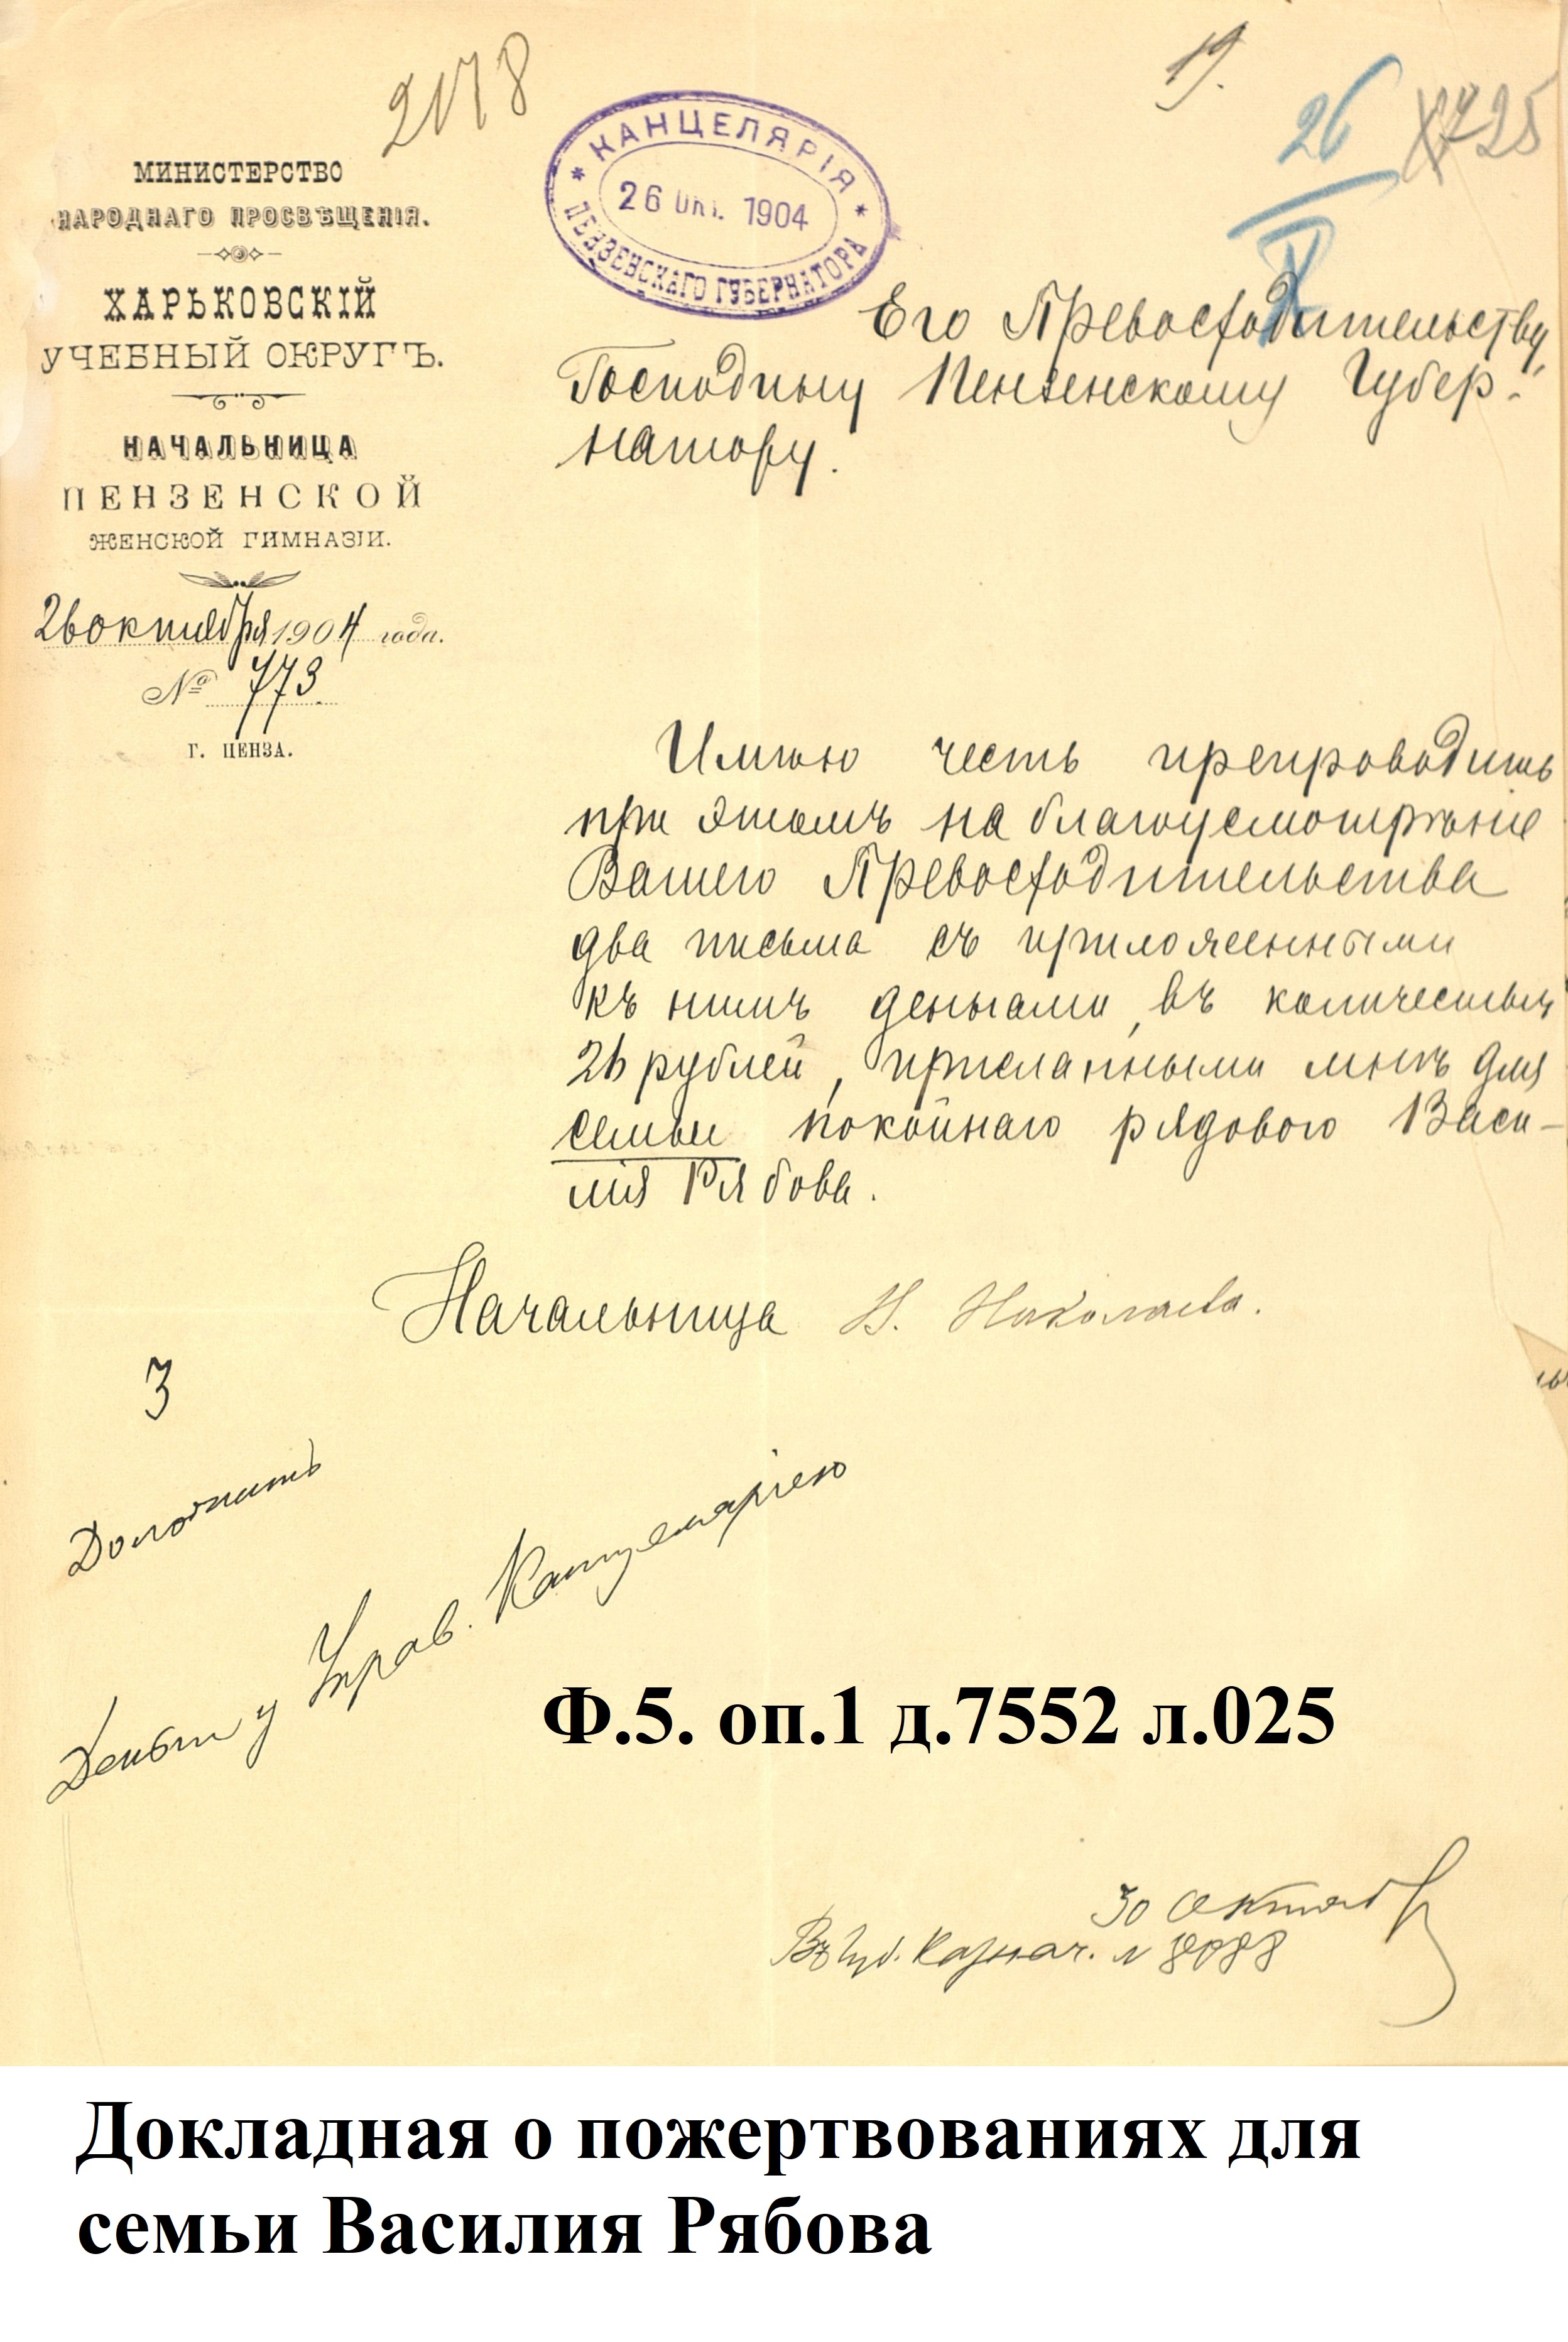 2178
19.
26
X
725
МИНИСТЕРСТВО
НАРОДНАГО ПРОСВѢЩЕНІЯ.
ХАРЬКОВСКІЙ
УЧЕБНЫЙ ОКРУГЪ.
НАЧАЛЬНИЦА
ПЕНЗЕНСКОЙ
ЖЕНСКОЙ ГИМНАЗІИ.
26 октября 1904 года.
№ 773.
Г. ПЕНЗА.
КАНЦЕЛЯРІЯ
26 ОКТ. 1904
ПЕНЗЕНСКАГО ГУБЕРНАТОРА
Его Превосходительству,
Господину Пензенскому Губер-
натору.
Имѣю честь препроводить
при этомъ на благоусмотрѣніе
Вашего Превосходительства
два письма съ приложенными
къ нимъ деньгами, въ количествѣ
26 рублей, присланными мнѣ для
семьи покойнаго рядового Васи-
лія Рябова.
Начальница Н. Николаева.
3
Доложить
Деньги у Управ. Канцеляріею
Ф.5. оп.1 д.7552 л.025
30 Октяб
Въ Губ. Казнач. № 8088
Докладная о пожертвованиях для
семьи Василия Рябова